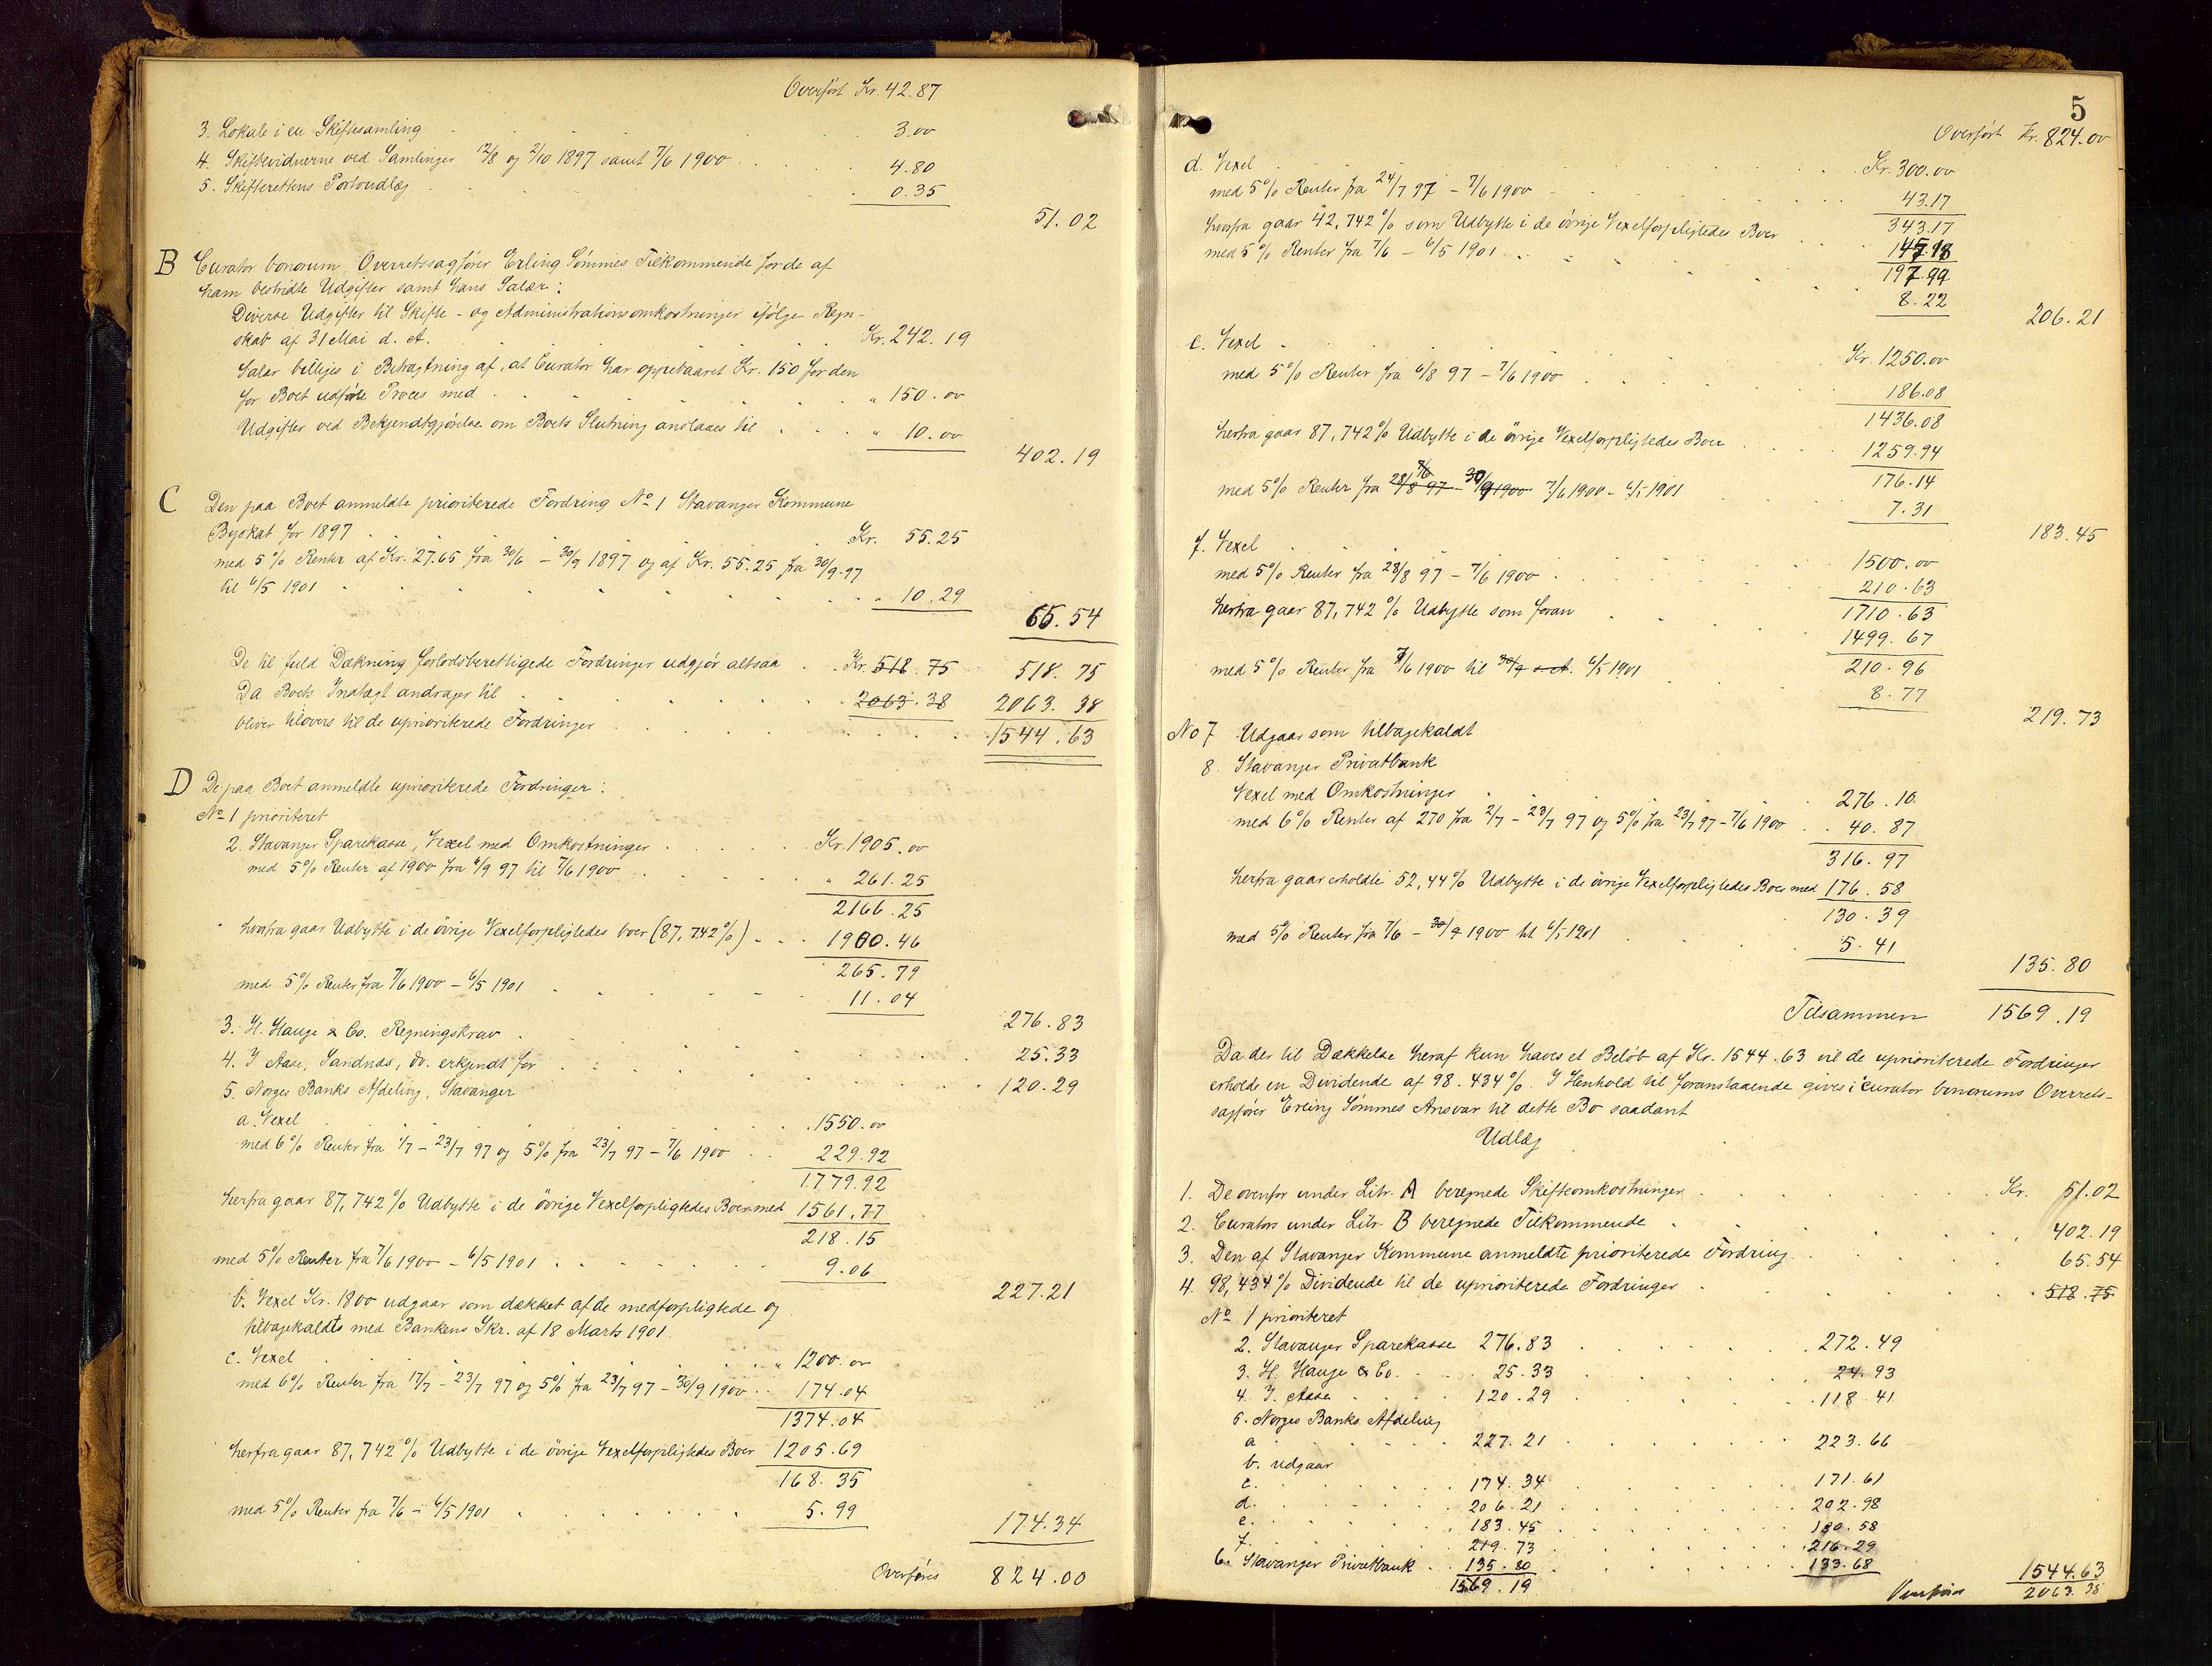 Overført Kr. 42.87
3. Lokale i en Skiftesamling 3.00
4. Skiftevidnerne ved Samlinger 12/8 og 2/10 1897 samt 7/6 1900 4.80
5. Skifterettens Portoudlæg 0.35
51.02
B Curator bonorum, Overretssagfører Erling Sømmes Tilkommende for de af
ham bestridte Udgifter samt hans Salær:
Diverse Udgifter til Skifte- og Administrationsomkostninger ifølge Regn-
skab af 31 Mai d. A. Kr. 242.19
Salær billiges i Betragtning af, at Curator har oppebaaret Kr. 150 for den
for Boet udførte Proces med " 150.00
Udgifter ved Bekjendtgjørelse om Boets Slutning anslaaes til " 10.00
402.19
C Den paa Boet anmeldte prioriterede Fordring No 1 Stavanger Kommune
Byskat for 1897 Kr. 55.25
med 5% Renter af Kr. 27.65 fra 30/6 - 30/9 1897 og af Kr. 55.25 fra 30/9-97
til 6/5 1901 " 10.29
65.54
De til fuld Dækning forlodsberettigede Fordringer udgjør altsaa Kr. 518.75 518.75
Da Boets Indtægt andrager til 2063.38 2063.38
bliver tilovers til de uprioriterede Fordringer 1544.63
D De paa Boet anmeldte uprioriterede Fordringer:
No 1 prioriteret
2. Stavanger Sparekasse, Vexel med Omkostninger Kr. 1905.00
med 5% Renter af 1900 fra 6/9 97 til 7/6 1900 " 261.25
2166.25
hvorfra gaar Udbytte i de øvrige Vexelforpligtedes boer (87,742%) 1900.46
265.79
med 5% Renter fra 7/6 1900 - 6/5 1901 11.04
276.83
3. H. Hauge & Co. Regningskrav 25.33
4. I Aase, Sandnæs, do. erkjendt for 120.29
5. Norges Banks Afdeling, Stavanger
a. Vexel 1550.00
med 6% Renter fra 1/7 - 23/7 97 og 5% fra 23/7 97 - 7/6 1900 229.92
1779.92
herfra gaar 87,742% Udbytte i de øvrige Vexelforpligtedes Boer med 1561.77
218.15
med 5% Renter fra 7/6 1900 - 6/5 1901 9.06
227.21
b. Vexel Kr. 1800 udgaar som dækket af de medforpligtede og
tilbagekaldts med Bankens Skr. af 18 Marts 1901.
c. Vexel " 1200.00
med 6% Renter fra 17/7 - 23/7 97 og 5% fra 23/7 97 - 30/9 1900 174.04
1374.04
herfra gaar 87,742% Udbytte i de øvrige Vexelforpligtedes Boer 1205.69
168.35
med 5% Renter fra 7/6 - 6/5 1901 5.99
174.34
Overføres 824.00
5
Overført Kr. 824.00
d. Vexel Kr. 300.00
med 5% Renter fra 24/7 97 - 7/6 1900 43.17
343.17
hvorfra gaar 42,742% som Udbytte i de øvrige Vexelforpligtedes Boer 145.18
197.99
med 5% Renter fra 7/6 - 6/5 1901 8.22
206.21
e. Vexel Kr. 1250.00
med 5% Renter fra 6/8 97 - 7/6 1900 186.08
1436.08
herfra gaar 87,742% Udbytte i de øvrige Vexelforpligtedes Boer 1259.94
176.14
med 5% Renter fra 28/8 97 - 30/9 1900 7/6 1900 - 6/5 1901 7.31
183.45
f. Vexel 1500.00
med 5% Renter fra 28/8 97 - 7/6 1900 210.63
1710.63
herfra gaar 87,742% Udbytte som foran 1499.67
210.96
med 5% Renter fra 7/6 1900 til 30/9 s. A. 6/5 1901 8.77
219.73
No 7 Udgaar som tilbagekaldt
8. Stavanger Privatbank
Vexel med Omkostninger 276.10
med 6% Renter af 270 fra 2/7 - 23/7 97 og 5% fra 23/7 97 - 7/6 1900 40.87
316.97
herfra gaar erholdte 52,44% Udbytte i de øvrige Vexelforpligtedes Boer med 176.58
130.39
med 5% Renter fra 7/6 - 30/9 1900 til 6/5 1901 5.41
135.80
Tilsammen 1569.19
Da der til Dækkelse heraf kun haves et Beløb af Kr. 1544.63 vil de uprioriterede Fordringer
erholde en Dividende af 98.434%. I Henhold til foranstaaende gives i curator bonorums Overrets-
sagfører Erling Sømmes Ansvar til dette Bo saadant
Udlæg
1. De ovenfor under Litr. A beregnede Skifteomkostninger Kr. 51.02
2. Curators under Litr. B beregnede Tilkommende 402.19
3. Den af Stavanger Kommune anmeldte prioriterede Fordring 65.54
4. 98,434% Dividende til de uprioriterede Fordringer 518.75
No 1 prioriteret
2. Stavanger Sparekasse 276.83 272.49
3. H. Hauge & Co. 25.33 24.93
4. I. Aase 120.29 118.41
5. Norges Banks Afdeling
a 227.21 223.66
b. udgaar
c. 174.34 171.61
d. 206.21 202.98
e. 183.45 180.58
f. 219.73 216.29
6. Stavanger Privatbank 135.80 133.68 1544.63
1569.19 2063.38